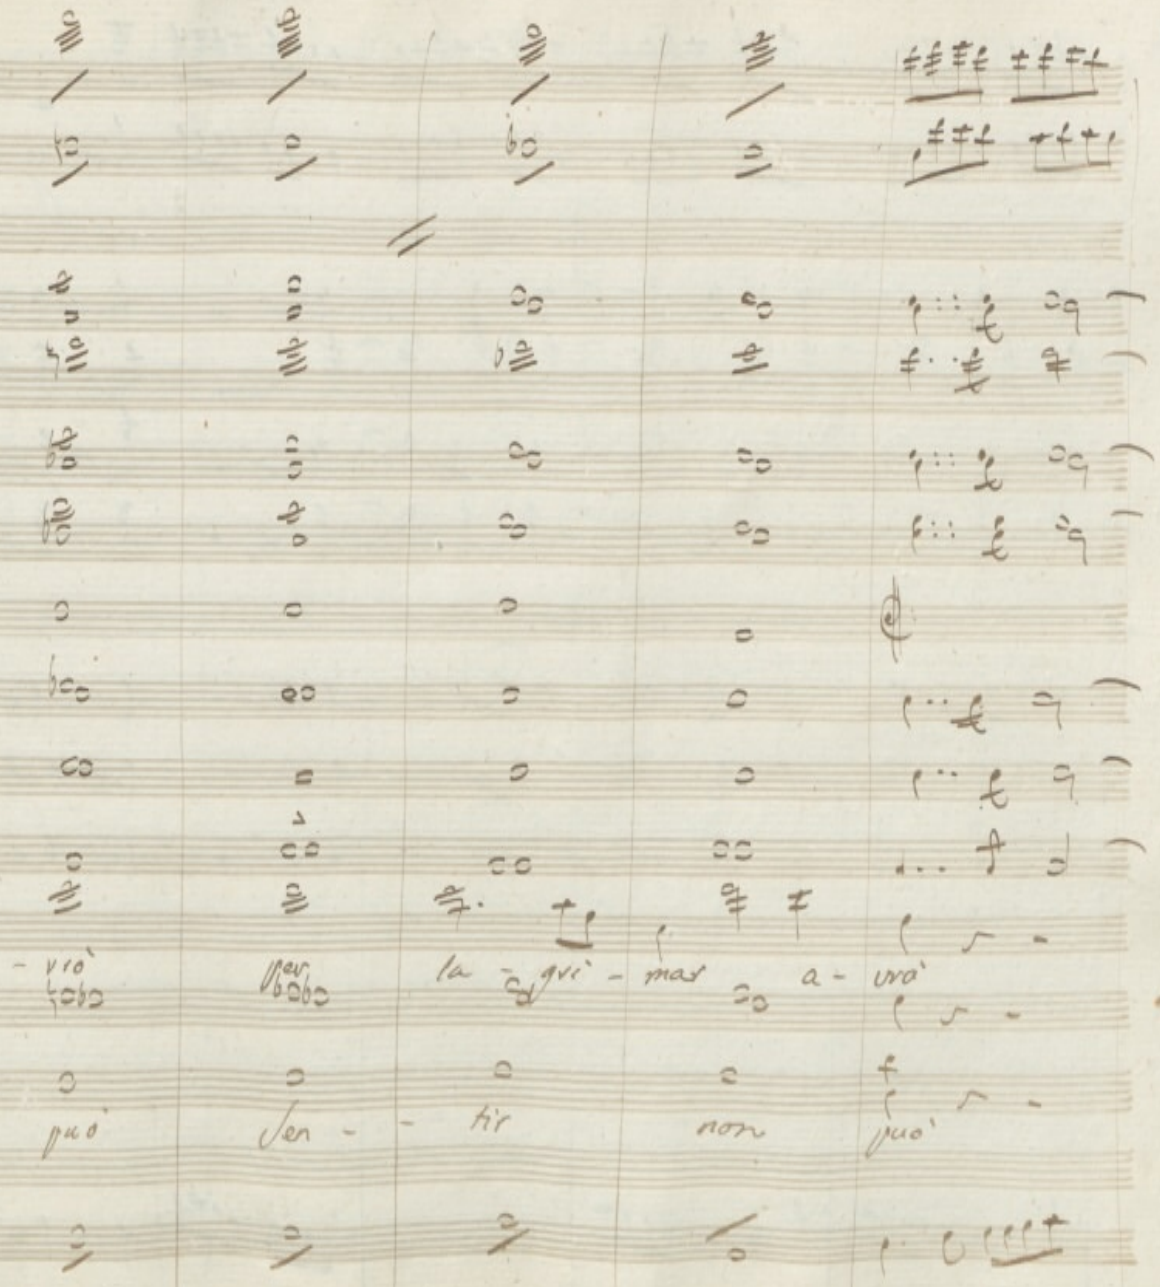 - vrò per la - gri - mar a - vrà
può sen - - tir non può